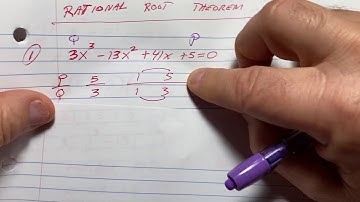 RATIONAL ROOT THEOREM
Q P
① 3x³ - 13x² + 41x + 5 = 0
P/Q 5/3 1 5 / 1 3